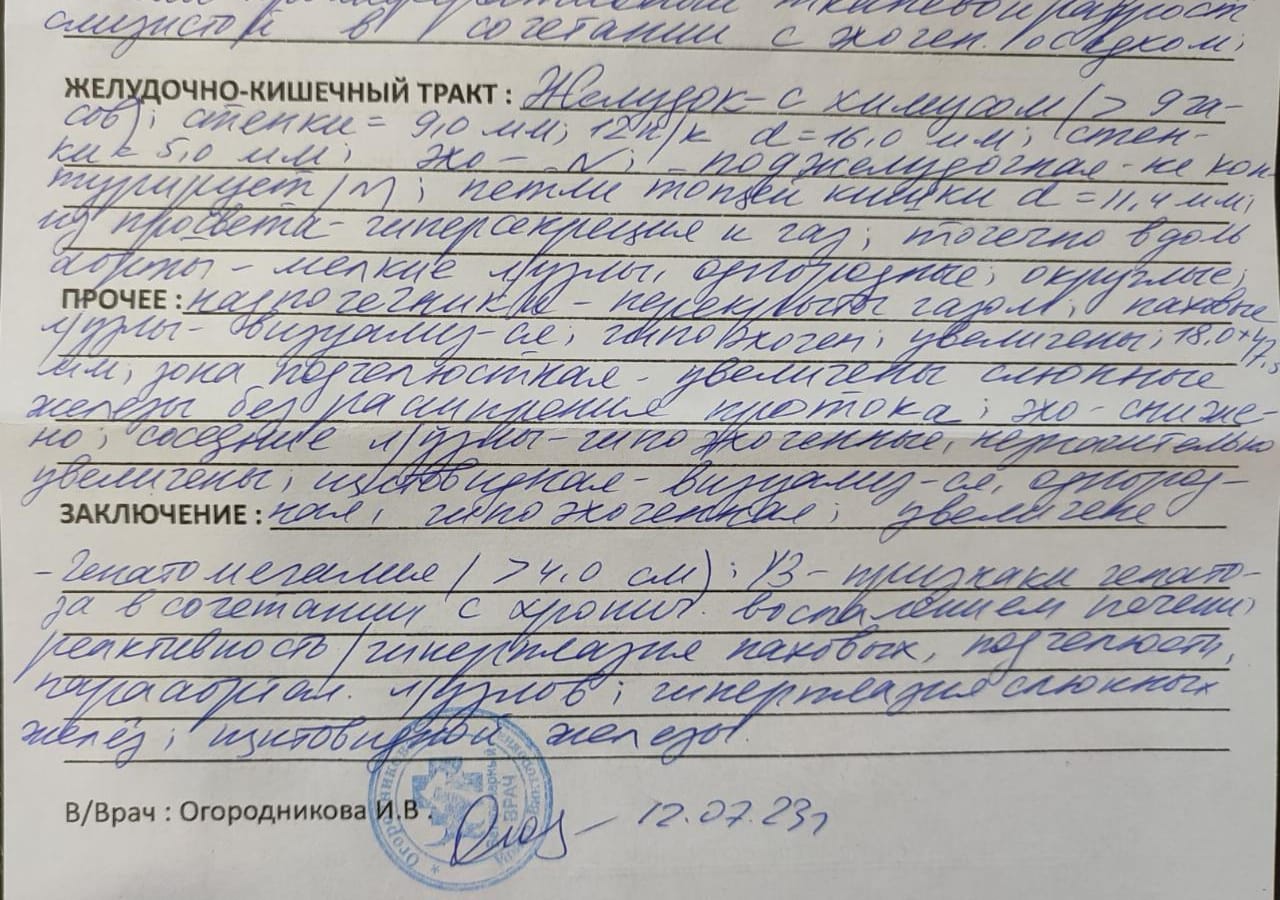 слизистой в сочетании с эхоген. осадком;
ЖЕЛУДОЧНО-КИШЕЧНЫЙ ТРАКТ : Желудок - с химусом (> 9 ча-
сов); стенки = 9,0 мм; 12 п/к d = 16,0 мм; стен-
ки = 5,0 мм; эхо - N; поджелудочная - не кон-
турирует (N); петли тощей кишки d = 11,4 мм;
из просвета - гиперсекреция и газ; точечно вдоль
аорты - мелкие л/узлы, однородные; округлые;
ПРОЧЕЕ : надпочечники - перекрыты газом; паховые
л/узлы - визуализ-ся; гипоэхоген; увеличены;
мм; зона подчелюстная - увеличены слюнные
железы без расширения протока; эхо - сниже-
но; соседние л/узлы - гипоэхогенные, незначительно
увеличены; щитовидная - визуализ-ся, однород-
ЗАКЛЮЧЕНИЕ : ная; гипоэхогенная; увеличена
- Гепатомегалия (> 4,0 см); УЗ - признаки гепато-
за в сочетании с хронич. воспалением печени;
реактивность/гиперплазия паховых, подчелюстн,
парааортал. л/узлов; гиперплазия слюнных
желёз; щитовидной железы.
В/Врач : Огородникова И.В .
ВРАЧ
12.07.23г